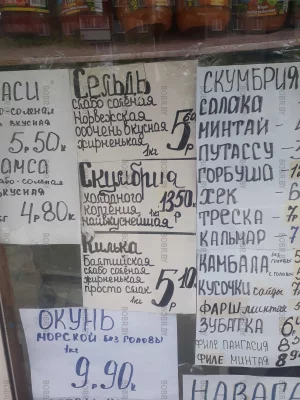 АСИ
ВКУСНАЯ
5,50к
АМСА
ВКУСНАЯ
4р80к
СЕЛЬДЬ
слабо солёная
Норвежская
ооочень вкусная
жирненькая
1кг
5р
Скумбрия
холодного
копчения
наивкуснейшая
1кг
13 50
р
Килька
Балтийская
слабо солёная
жирненькая
просто смак
1кг
5р 10к
ОКУНЬ
МОРСКОЙ БЕЗ ГОЛОВЫ
1кг
9,90к
СКУМБРИЯ
САЛАКА
МИНТАЙ
ПУТАССУ
ГОРБУША
ХЕК
ТРЕСКА
КАЛЬМАР
КАМБАЛА
КУСОЧКИ сайды
ФАРШ минтая
ЗУБАТКА
ФИЛЕ ПАНГАСИЯ 8
ФИЛЕ МИНТАЯ 8
НАВАГА
BOBR.BY